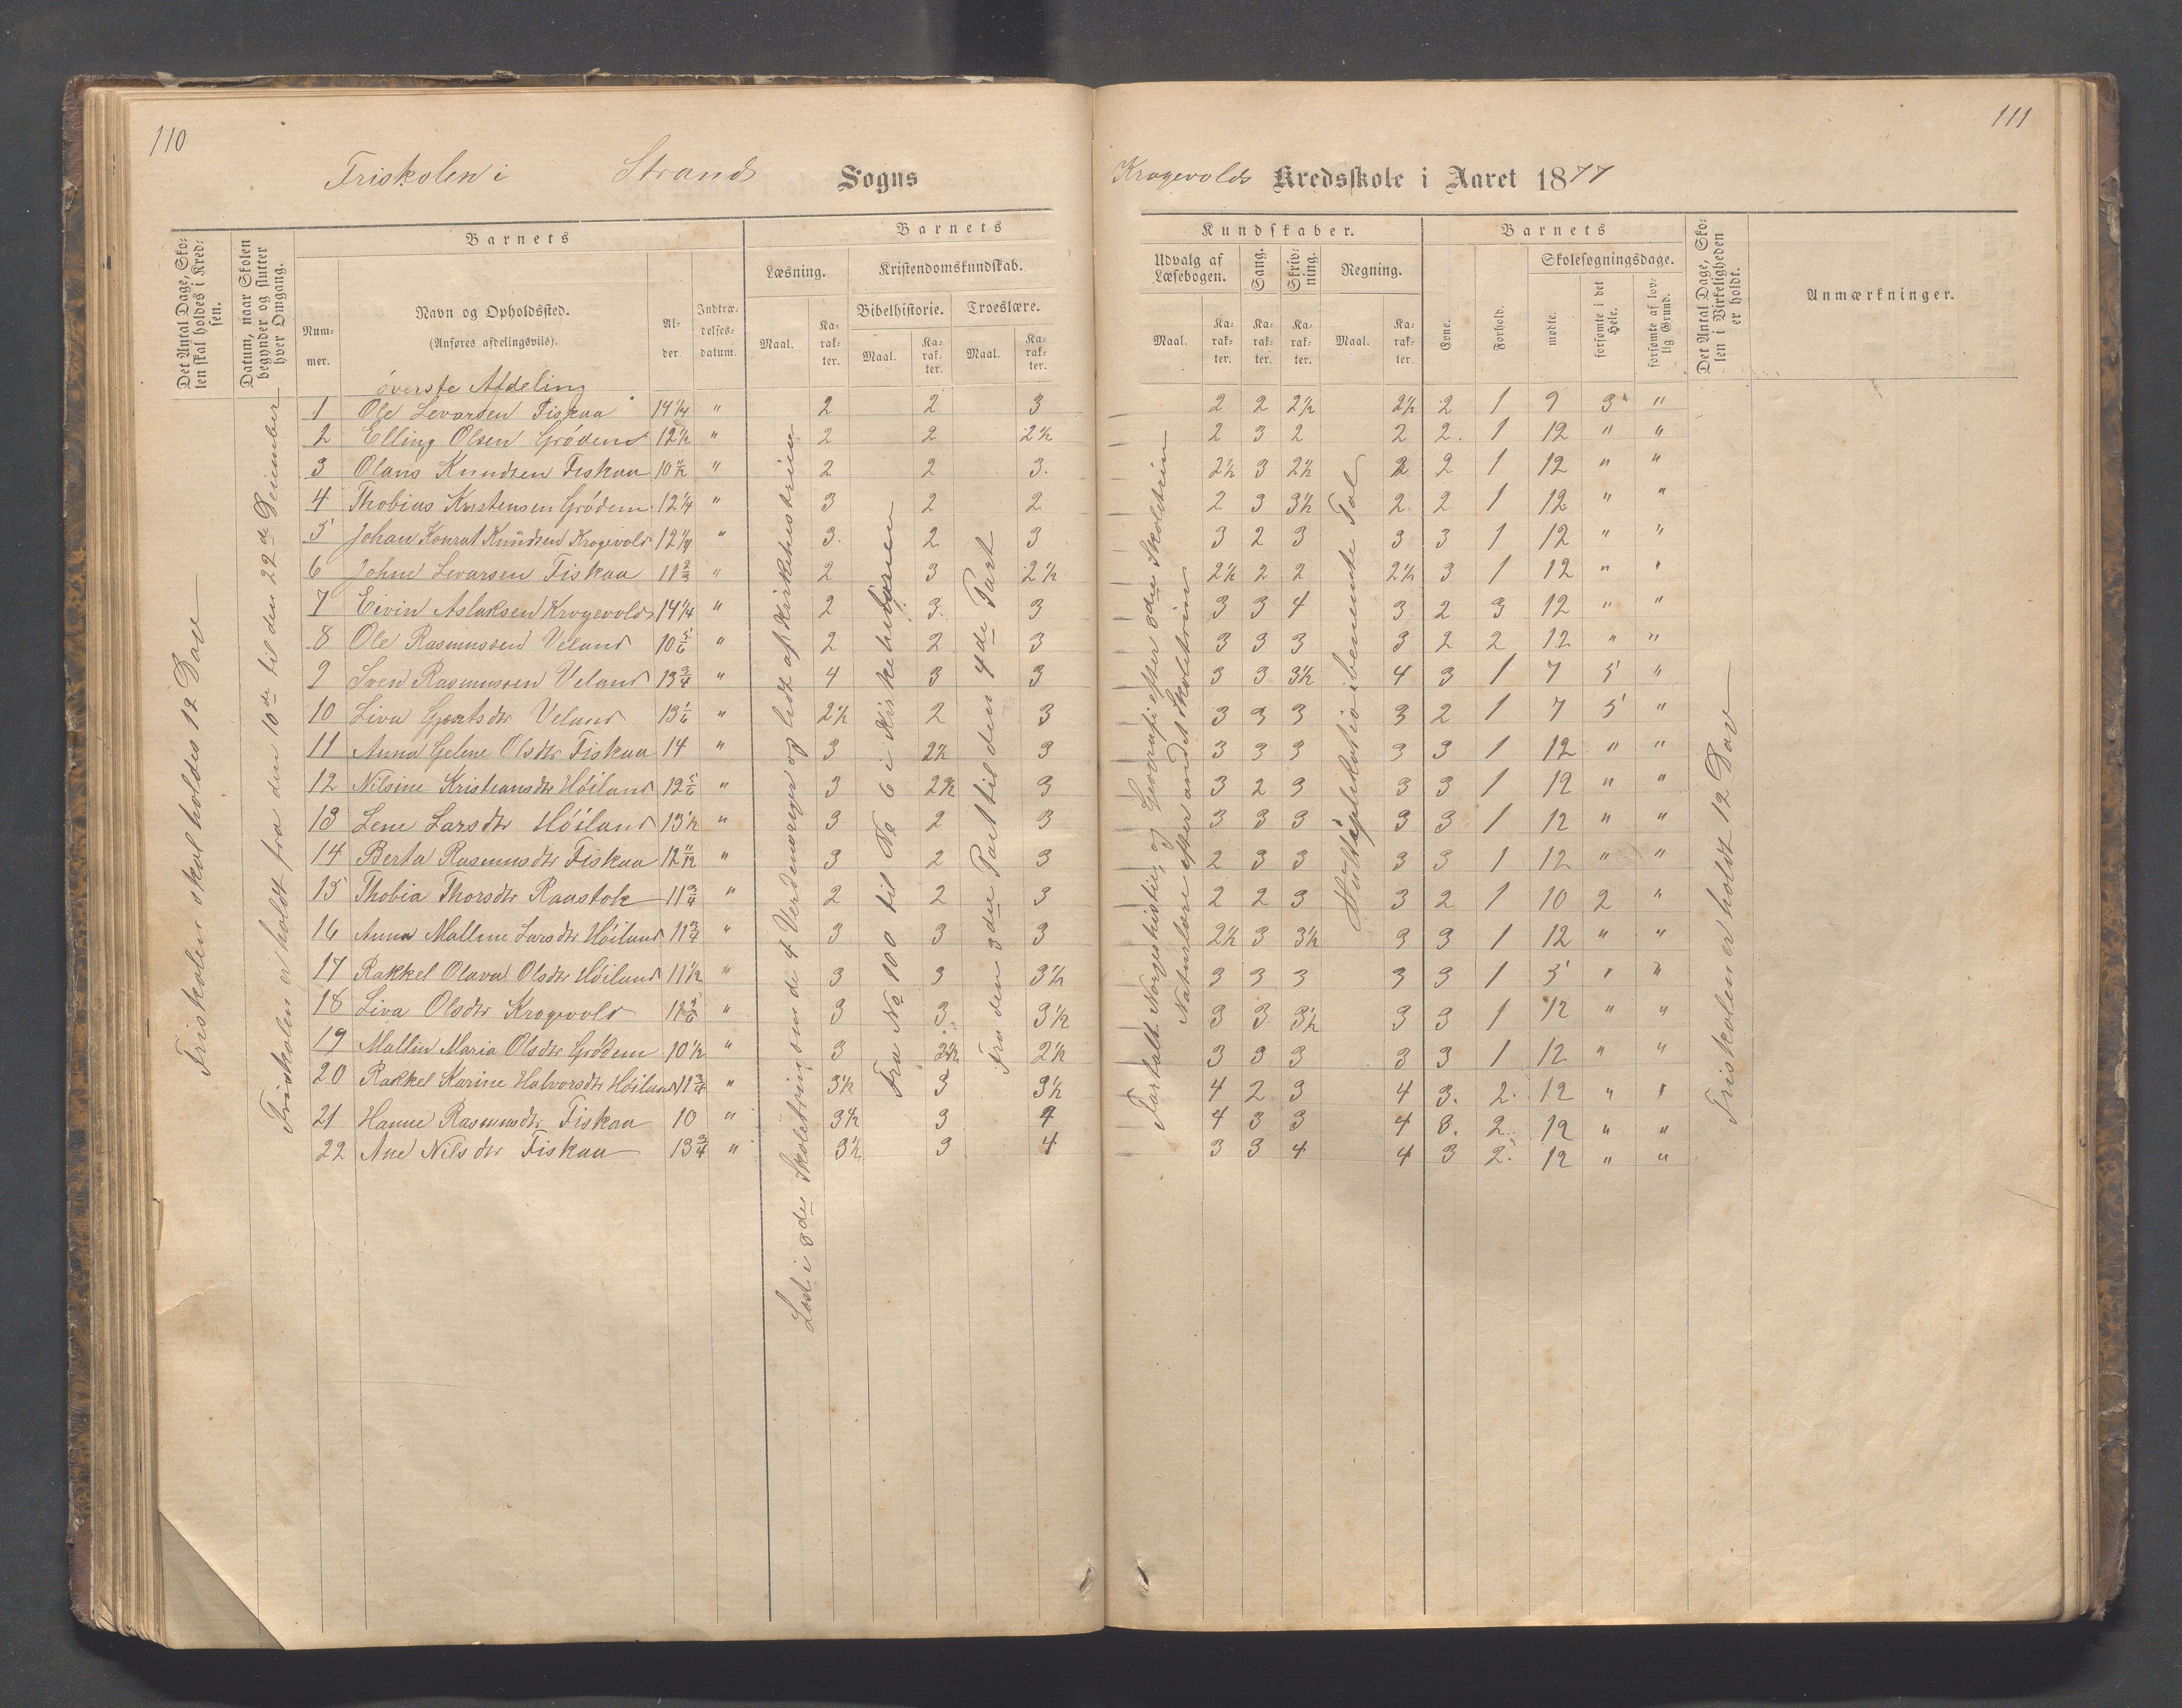 110
Friskolen i Strand Sogns
Det Antal Dage, Skolen skal holdes i Kredsen.
Datum, naar Skolen begynder og slutter hver Omgang.
Barnets
Nummer.
Navn og Opholdssted.
(Anføres afdelingsviis).
Alder.
Indtrædelsesdatum.
Barnets
Læsning.
Maal.
Karakter.
Kristendomskundskab.
Bibelhistorie.
Maal.
Karakter.
Troeslære.
Maal.
Karakter.
Friskolen skal holdes 12 Dage
Friskolen er holdt fra den 10de til den 22de December
øverste Afdeling
1 Ole Levarsen Fiskaa 14 1/4 " 2 2 3
2 Elling Olsen Grødem 12 1/2 " 2 2 2 1/2
3 Olaus Knudsen Fiskaa 10 11/12 " 2 2 3.
4 Thobias Kristensen Grødem 12 1/4 " 3 2 2
5 Johan Konrat Knudsen Krogevold 12 1/4 " 3. 2 3
6 Johne Levarsen Fiskaa 11 2/3 " 2 3 2 1/2
7 Eivin Aslaksen Krogevold 14 1/4 " 2 3 3
8 Ole Rasmussen Veland 10 5/6 " 2 2 3
9 Sven Rasmussen Veland 13 3/4 " 4 3 3
10 Liva Goartsdtr Veland 13 1/6 " 2 1/2 2 3
11 Anna Gelene Olsdtr Fiskaa 14 " 3 2 1/2 3
12 Nilsine Kristiansdtr Høiland 12 5/6 " 3 2 1/2 3
13 Lene Larsdtr Høiland 13 1/2 " 3 2 3
14 Berta Rasmusdtr Fiskaa 12 11/12 " 3 2 3
15 Thobia Thorsdtr Raustok 11 3/4 " 2 2 3
16 Anna Malline Larsdtr Høiland 11 3/4 " 3 3 3
17 Rakkel Olava Olsdtr Høiland 11 1/2 " 3 3 3 1/2
18 Liva Olsdtr Krogevold 12 5/6 " 3 3. 3 1/2
19 Mallin Maria Olsdtr Grødem 10 1/2 " 3 2 1/2 2 1/2
20 Rakkel Karine Halvorsdtr Høiland 11 3/4 " 3 1/2 3 3 1/2
21 Hanne Rasmusdtr Fiskaa 10 " 3 1/2 3 4
22 Ane Nilsdtr Fiskaa 13 3/4 " 3 1/2 3 4
Læst i 3de Skoletrin, om de 4 Verdensriger og lidt af Kirkehistorien
Fra No 100 til No 6 i Kirkehistorien
Fra den 3die Part til den 4de Part
111
Krogevolds Kredsskole i Aaret 1877
Kundskaber.
Udvalg af Læsebogen.
Maal.
Karakter.
Sang.
Karakter.
Skrivning.
Karakter.
Regning.
Maal.
Karakter.
Barnets
Evne.
Forhold.
Skolesøgningsdage.
mødte.
forsømte i det Hele.
forsømte af lovlig Grund.
Det Antal Dage, Skolen i Virkeligheden er holdt.
Anmærkninger.
2 2 2 1/2 2 1/2 2 1 9 3 "
2 3 2 2 2. 1 12 " "
2 1/2 3 2 1/2 2 2 1 12 " "
2 3 3 1/2 2 2 1 12 " "
3 2 3 3 3 1 12 " "
2 1/2 2 2 2 1/2 3 1 12 " "
3 3 4 3 2 3 12 " "
3 3 3 3 2 2 12 " "
3 3 3 1/2 4 3 1 7 5 "
3 3 3 3 2 1 7 5 "
3 3 3 3 3 1 12 " "
3 2 3 3 3 1 12 " "
3 3 3 3 3 1 12 " "
2 3 3 3 3 1 12 " "
2 2 3 3 2 1 10 2 "
2 1/2 3 3 1/2 3 3 1 12 " "
3 3 3 3 3 1 5 " "
3 3 3 1/2 3 3 1 12 " "
3 3 3 3 3 1 12 " "
4 2 3 4 3. 2. 12 " "
4 3 3 4 3. 2. 12 " "
3 3 4 4 3 2. 12 " "
Fortalt Norgeshistie, og Geografi efter 3die Skoletrin
Naturlære efter andet Skoletrin
Multiplikation i benævnte Tal
Friskolen er holdt 12 Dage